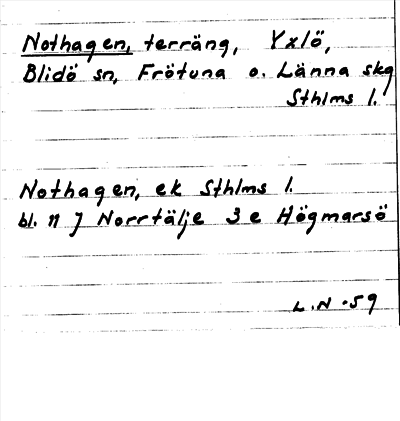 Nothagen, terräng, Yxlö,
Blidö sn, Frötuna o. Länna skg
Sthlms l.
Nothagen, ek Sthlms l.
bl. 11 J Norrtälje 3 e Högmarsö
L.N -59